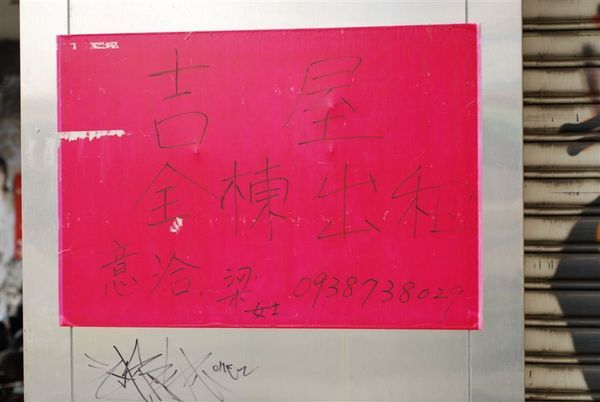 吉屋
全棟出租
意洽.梁女士 0938738029